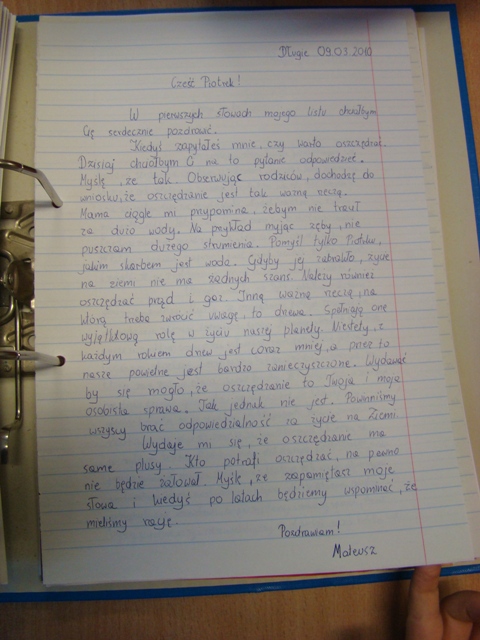 Długie 09.03.2010
Cześć Piotrek!
W pierwszych słowach mojego listu chciałbym
Cię serdecznie pozdrowić.
Kiedyś zapytałeś mnie, czy warto oszczędzać.
Dzisiaj chciałbym Ci na to pytanie odpowiedzieć.
Myślę, że tak. Obserwując rodziców, dochodzę do
wniosku, że oszczędzanie jest tak ważną rzeczą.
Mama ciągle mi przypomina, żebym nie tracił
za dużo wody. Na przykład myjąc zęby, nie
puszczam dużego strumienia. Pomyśl tylko Piotrku,
jakim skarbem jest woda. Gdyby jej zabrakło, życie
na ziemi nie ma żadnych szans. Należy również
oszczędzać prąd i gaz. Inną ważną rzeczą, na
którą trzeba zwrócić uwagę, to drzewa. Spełniają one
wyjątkową rolę w życiu naszej planety. Niestety, z
każdym rokiem drzew jest coraz mniej, a przez to
nasze powietrze jest bardzo zanieczyszczone. Wydawać
by się mogło, że oszczędzanie to Twoja i moja
osobista sprawa. Tak jednak nie jest. Powinniśmy
wszyscy brać odpowiedzialność za życie na Ziemi.
Wydaje mi się, że oszczędzanie ma
same plusy. Kto potrafi oszczędzać, na pewno
nie będzie żałował. Myślę, że zapamiętasz moje
słowa i kiedyś po latach będziemy wspominać, że
mieliśmy rację.
Pozdrawiam!
Mateusz